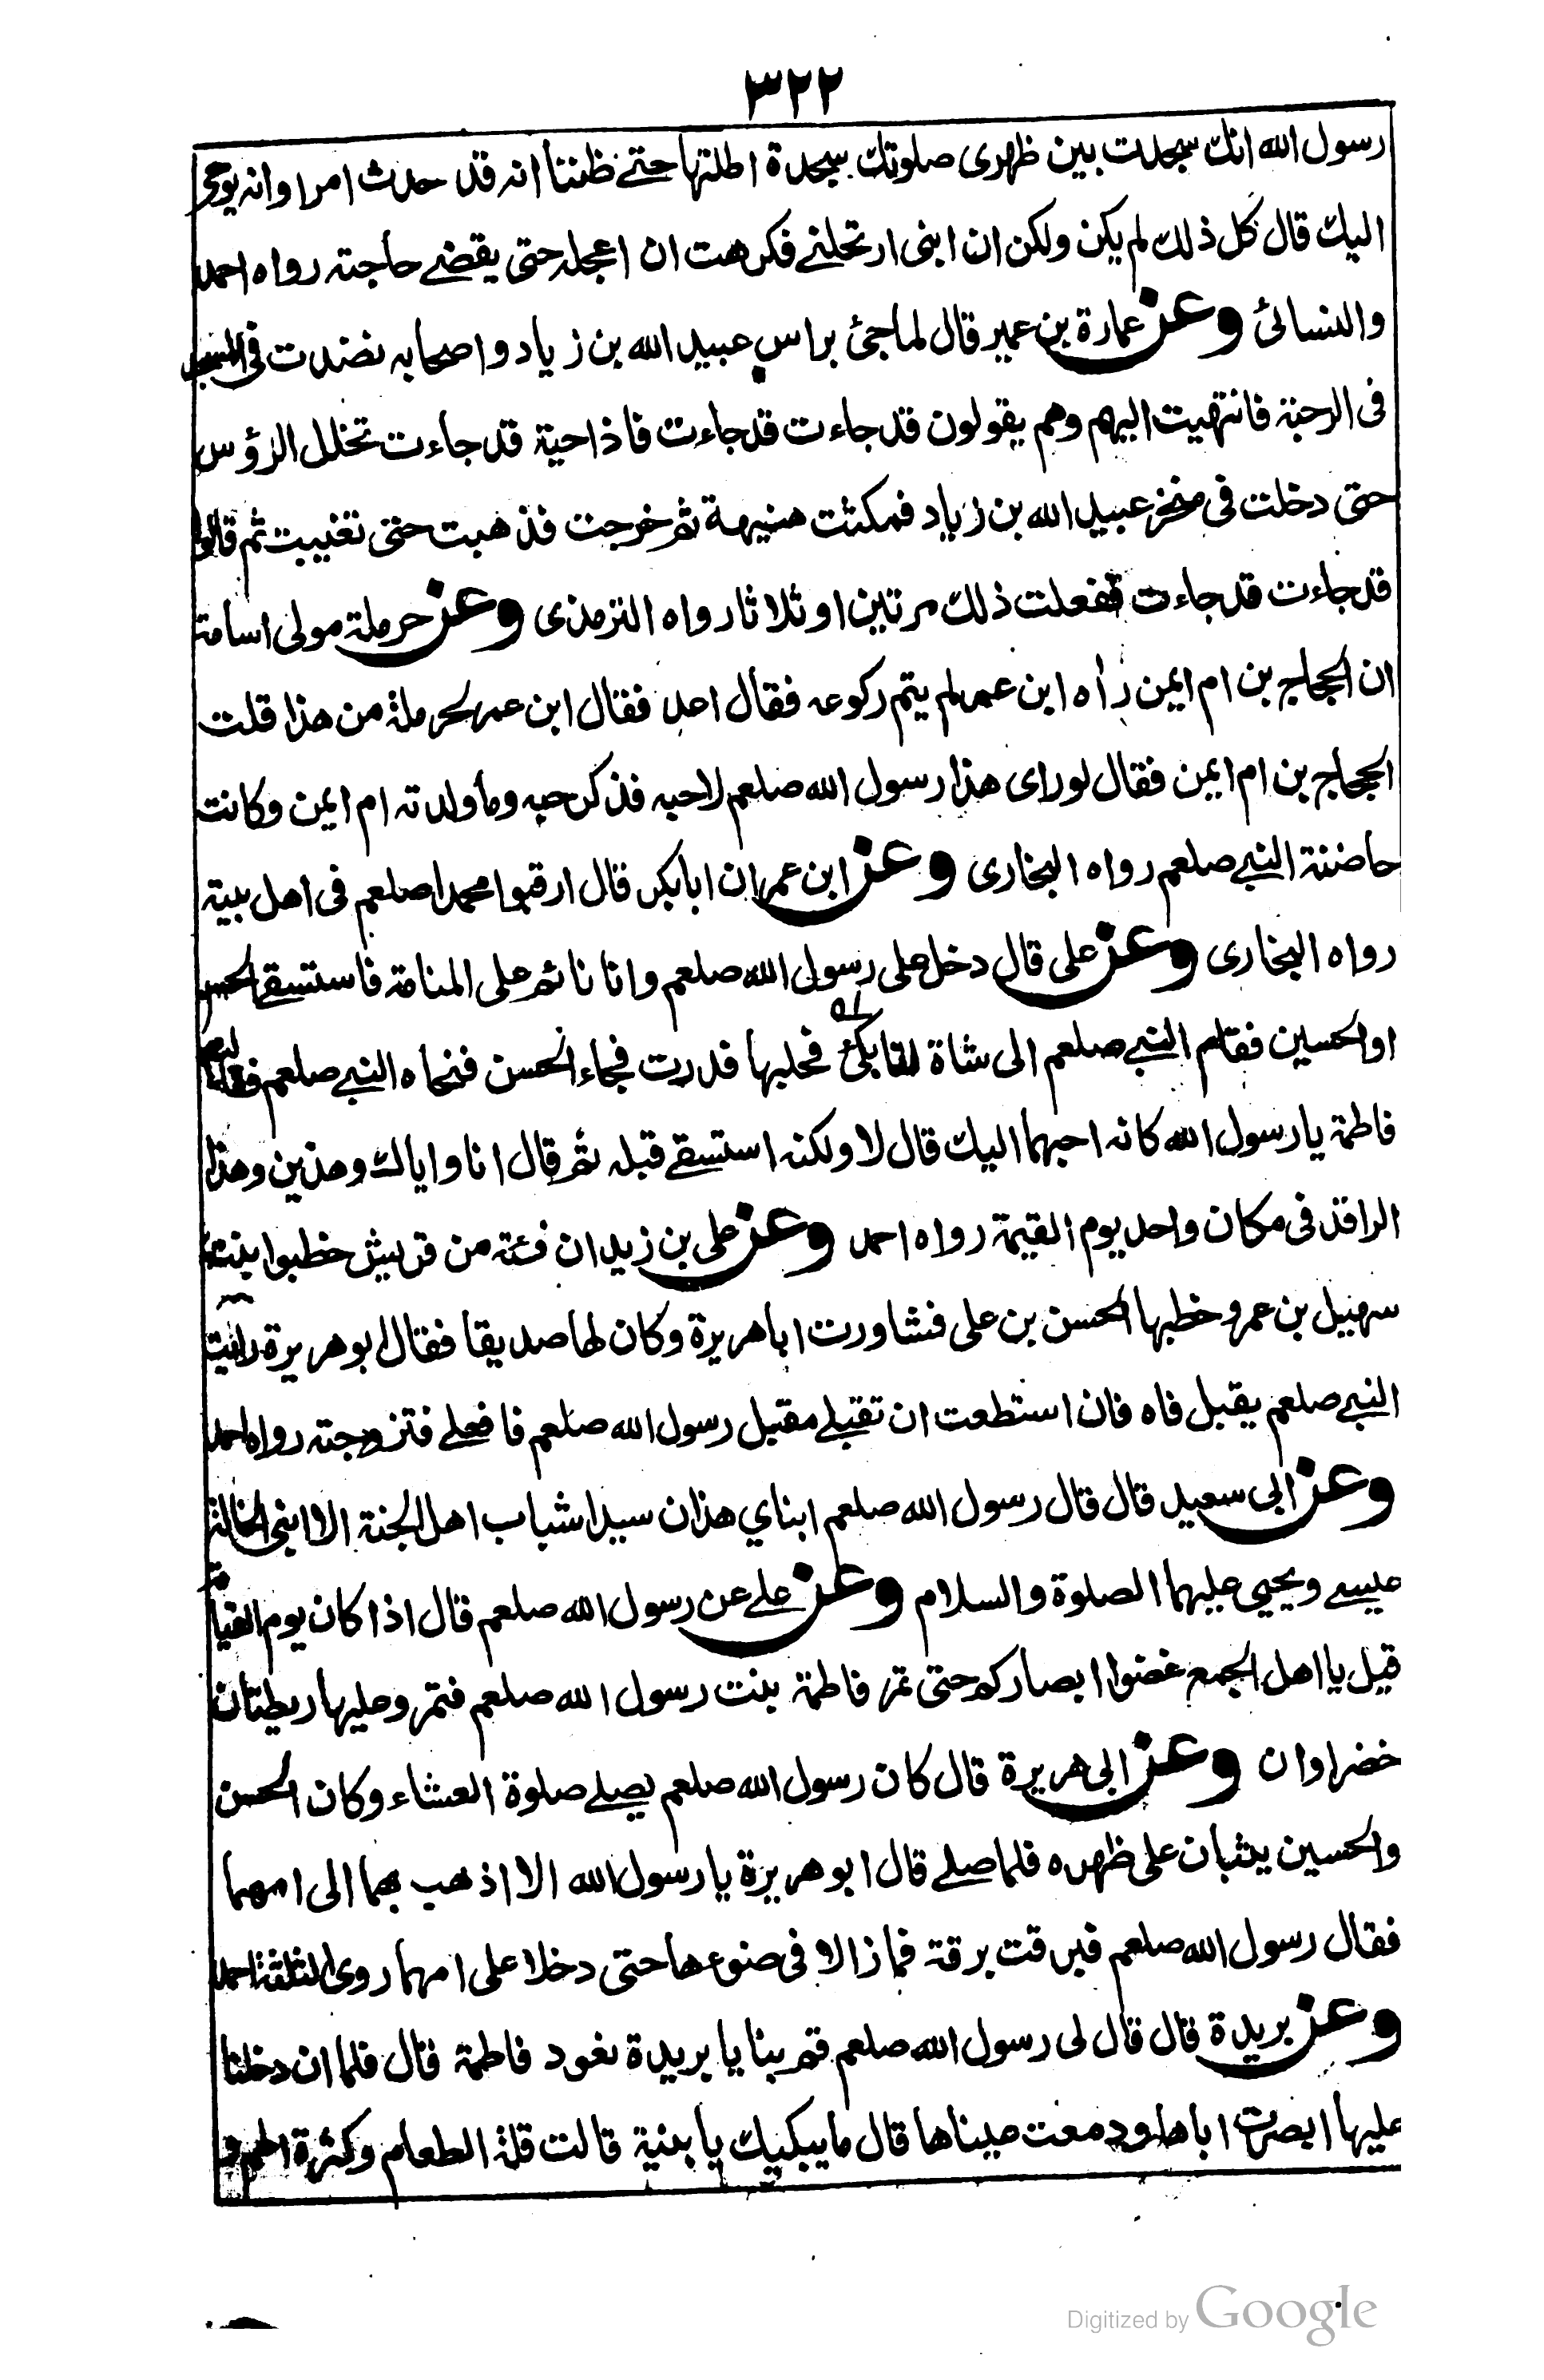 ٣٢٢
رسول الله انك سجدت بين ظهرى صلوتك سجدة اطلتها حتے ظننا انه قد حدث امر او انه يوحى
اليك قال كل ذلك لم يكن ولكن ان ابنى ارتحلنے فكرهت ان اعجله حتى يقضے حاجته رواه احمد
والنسائى وعن عمارة بن عمير قال لما جئ براس عبيد الله بن زياد واصحابه نضدت فى المسجد
فى الرحبة فانتهيت اليهم وهم يقولون قد جاءت قد جاءت فاذا حية قد جاءت تخلل الرؤس
حتى دخلت فى منخر عبيد الله بن زياد فمكثت هنيهة ثم خرجت فذهبت حتى تغيبت ثم قالوا
قد جاءت قد جاءت ففعلت ذلك مرتين او ثلاثا رواه الترمذى وعن حرملة مولى اسامة
ان الحجاج بن ام ايمن راه ابن عمر لم يتم ركوعه فقال اعد فقال ابن عمر لحرملة من هذا قلت
الحجاج بن ام ايمن فقال لو راى هذا رسول الله صلعم لاحبه فذكر حبه وما ولدته ام ايمن وكانت
حاضنة النبے صلعم رواه البخارى وعن ابن عمر ان ابا بكر قال ارقبوا محمدا صلعم فى اهل بيته
رواه البخارى وعن على قال دخل على رسول الله صلعم وانا نائم على المنامة فاستسقے الحسن
او الحسين فقام النبے صلعم الى شاة لنا بكئ فحلبها فدرت فجاء الحسن فنحاه النبے صلعم فقالت
فاطمة يا رسول الله كانه احبهما اليك قال لا ولكنه استسقے قبله ثم قال انا واياك وهذين وهذا
الراقد فى مكان واحد يوم القيمة رواه احمد وعن على بن زيد ان فئة من قريش خطبوا بنت
سهيل بن عمرو خطبها الحسن بن على فشاورت اباهريرة وكان لها صديقا فقال ابوهريرة رايت
النبے صلعم يقبل فاه فان استطعت ان تقبلے مقبل رسول الله صلعم فافعلے فتزوجته رواه احمد
وعن ابى سعيد قال قال رسول الله صلعم ابناي هذان سيدا شباب اهل الجنة الا ابنى الخالة
عيسے ويحيي عليهما الصلوة والسلام وعن علے عن رسول الله صلعم قال اذا كان يوم القيامة
قيل يا اهل الجمع غضوا ابصاركم حتى تمر فاطمة بنت رسول الله صلعم فتمر وعليها ريطتان
خضراوان وعن ابى هريرة قال كان رسول الله صلعم يصلے صلوة العشاء وكان الحسن
والحسين يثبان على ظهره فلما صلے قال ابوهريرة يا رسول الله الا اذهب بهما الى امهما
فقال رسول الله صلعم فبرقت برقة فما زالا فى ضوءها حتى دخلا على امهما روى الثلثة احمد
وعن بريدة قال قال لى رسول الله صلعم قم بنا يا بريدة نعود فاطمة قال فلما ان دخلنا
عليها ابصرت اباها ودمعت عيناها قال ما يبكيك يا بنية قالت قلة الطعام وكثرة الهم و
Digitized by Google